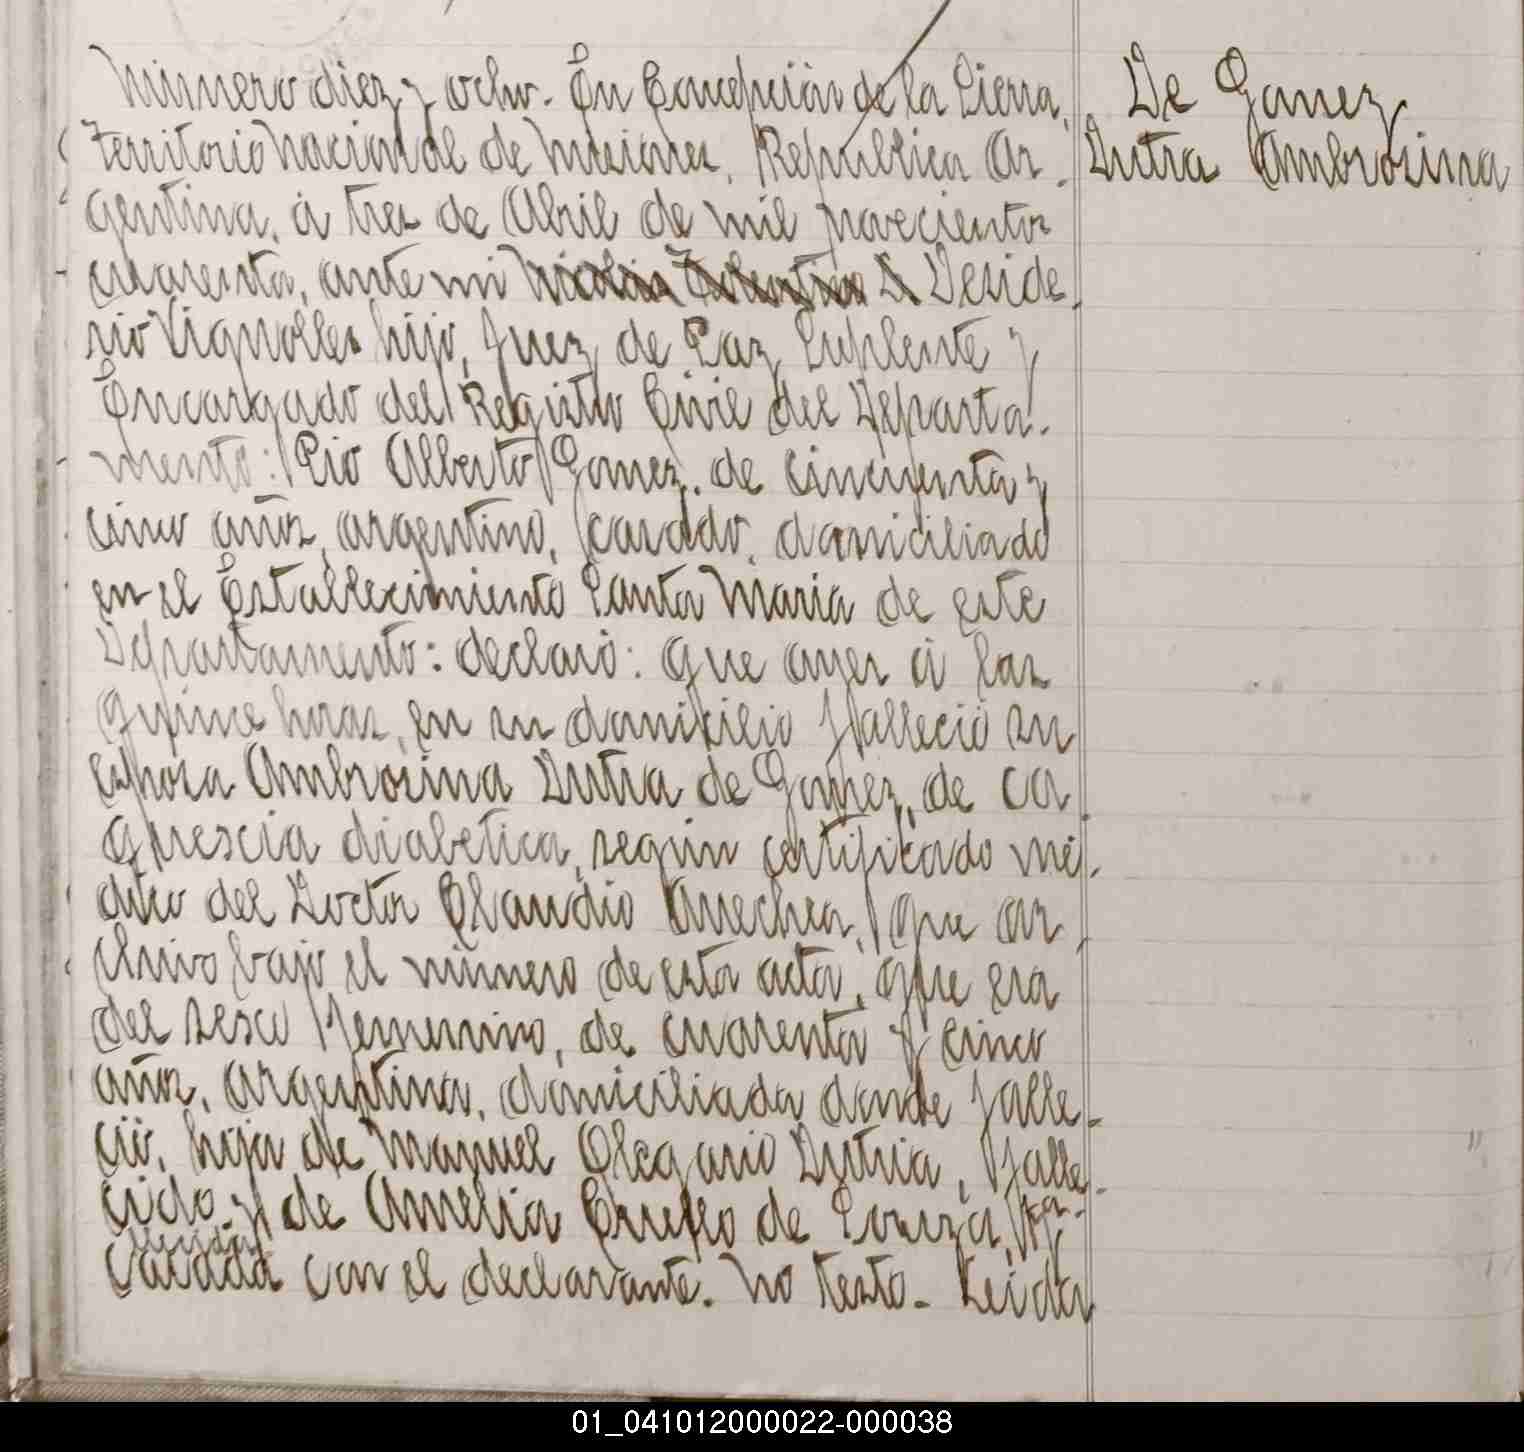 Número diez y ocho. En Concepción de la Sierra,
Territorio Nacional de Misiones, República Ar-
gentina, á tres de Abril de mil novecientos
cuarenta, ante mi Nicolás Tolentino S. Deside-
rio Vignolles hijo, Juez de Paz Suplente y
Encargado del Registro Civil del Departa-
mento: Pio Alberto Gomez, de cincuenta y
cinco años, argentino, casado, domiciliado
en el Establecimiento Santa Maria de este
Departamento: declaró: que ayer á las
quince horas, en su domicilio falleció su
esposa Ambrosina Dutra de Gomez, de ca
quescia diabetica, según certificado mé-
dico del Doctor Claudio Arrechea, que ar-
chivo bajo el número de esta acta, que era
del sexo femenino, de cuarenta y cinco
años, argentina, domiciliada donde falle-
ció, hija de Manuel Olegario Dutra, falle-
cido y de Amelia de Souza,
casada con el declarante. No testo. Leída
De Gomez
Dutra Ambrosina
01_041012000022-000038